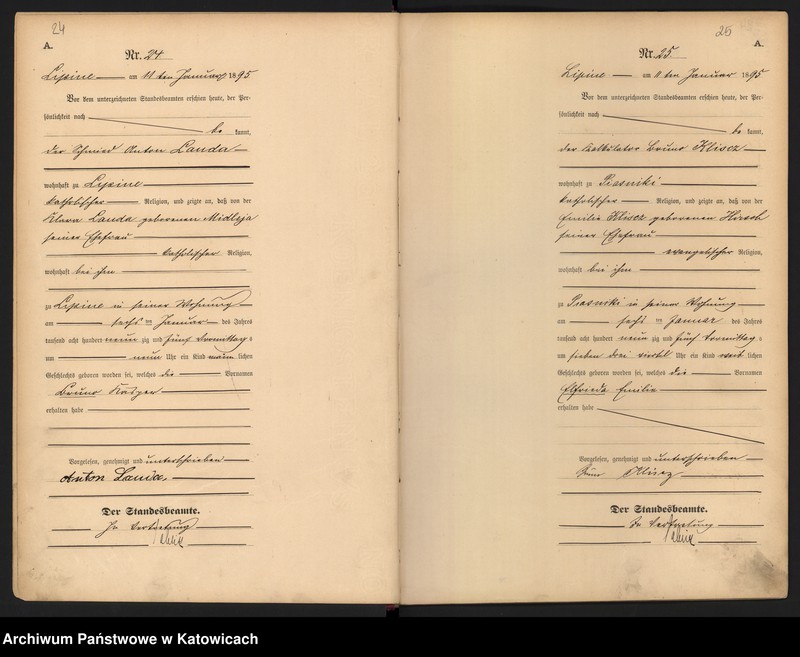 24
A.
Nr. 24
Lipine am 11ten Januar 1895
Vor dem unterzeichneten Standesbeamten erschien heute, der Per-
sönlichkeit nach
be kannt,
der Schmied Anton Landa
wohnhaft zu Lipine
katholischer Religion, und zeigte an, daß von der
Klara Landa geborenen
seiner Ehefrau
katholischer Religion,
wohnhaft bei ihm
zu Lipine in seiner Wohnung
am sechsten Januar des Jahres
tausend acht hundert neunzig und fünf Vormittags
um neun Uhr ein Kind männlichen
Geschlechts geboren worden sei, welches die Vornamen
Bruno
erhalten habe
Vorgelesen, genehmigt und unterschrieben
Anton Landa.
Der Standesbeamte.
In Vertretung
25
A.
Nr. 25.
Lipine am 11ten Januar 1895
Vor dem unterzeichneten Standesbeamten erschien heute, der Per-
sönlichkeit nach
be kannt,
der Kalkulator Bruno Kliscz
wohnhaft zu Piasniki
katholischer Religion, und zeigte an, daß von der
Emilie Kliscz geborenen Hirsch
seiner Ehefrau
evangelischer Religion,
wohnhaft bei ihm
zu Piasniki in seiner Wohnung
am sechsten Januar des Jahres
tausend acht hundert neunzig und fünf Vormittags
um sieben drei viertel Uhr ein Kind weiblichen
Geschlechts geboren worden sei, welches die Vornamen
Elfriede Emilie
erhalten habe
Vorgelesen, genehmigt und unterschrieben
Kliscz
Der Standesbeamte.
In Vertretung
Archiwum Państwowe w Katowicach